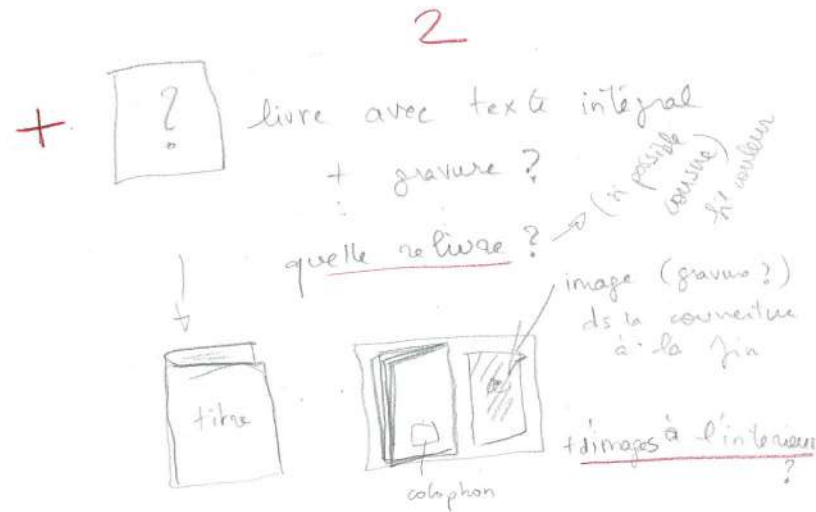 2
+ ? livre avec texte intégral
+ gravure ?
quelle relivre ?
(si possible
cousue)
fil couleur
image (gravure ?)
ds la couverture
à la fin
titre
colophon
+ d'images à l'intérieur
?